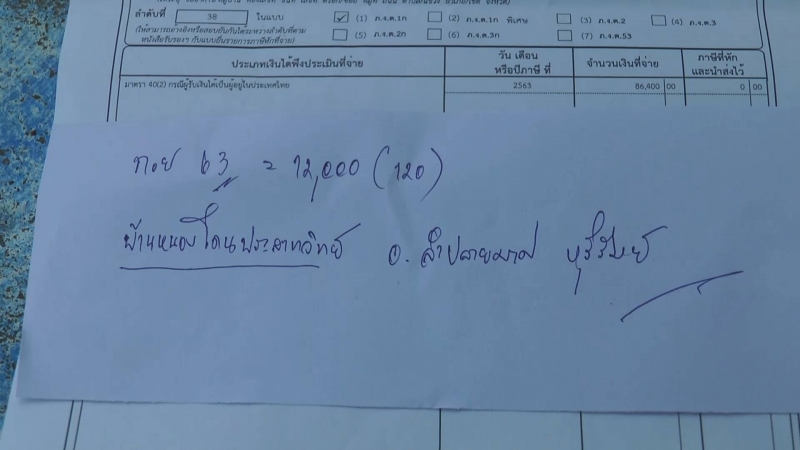 ลำดับที่ 38 ในแบบ (1) ภ.ง.ด.1ก (2) ภ.ง.ด.1ก พิเศษ (3) ภ.ง.ด.2 (4) ภ.ง.ด.3
(ให้สามารถอ้างอิงหรือสอบยันกันได้ระหว่างลำดับที่ตาม
หนังสือรับรองฯ กับแบบยื่นรายการภาษีหักที่จ่าย) (5) ภ.ง.ด.2ก (6) ภ.ง.ด.3ก (7) ภ.ง.ด.53
ประเภทเงินได้พึงประเมินที่จ่าย วัน เดือน หรือปีภาษี ที่ จำนวนเงินที่จ่าย ภาษีที่หัก และนำส่งไว้
มาตรา 40(2) กรณีผู้รับเงินได้เป็นผู้อยู่ในประเทศไทย 2563 86,400 00 0 00
63 = 12,000 (120)
บ้านหนองโดนประสาทวิทย์ อ. ลำปลายมาศ บุรีรัมย์